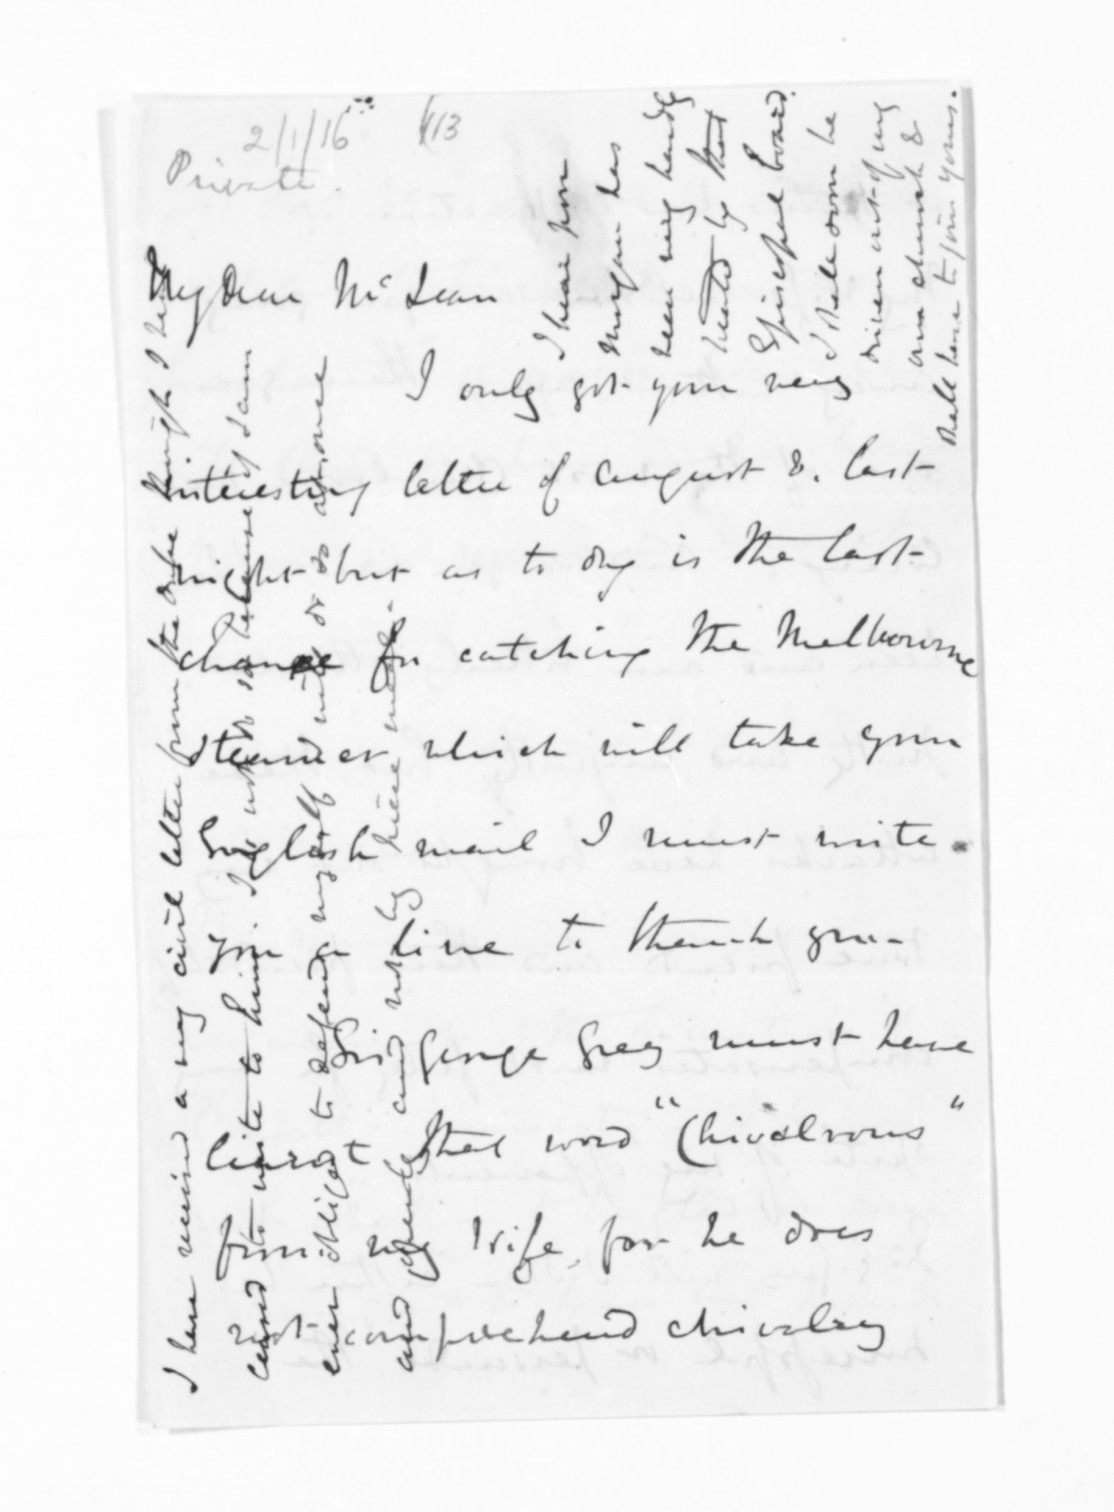 2/1/16
113
Private.
My Dear McLean
I only got your very
interesting letter of August 8. last
night but as to day is the last
chance for catching the Melbourne
steamer which will take your
English mail I must write
you a line to thank you-
Sir George Grey must have
learnt that word "Chivalrous"
from my Wife, for he does
not comprehend chivalry
I hear poor
Morgan has
been very hardly
treated by that
Episcopal board.
I shall soon be
driven out of my
own church &
shall have to join yours.
I have received a very civil letter from the Duke though I
cannot write to him. I do not do so because I am
ever obliged to defend myself and do so at once
and openly and not by